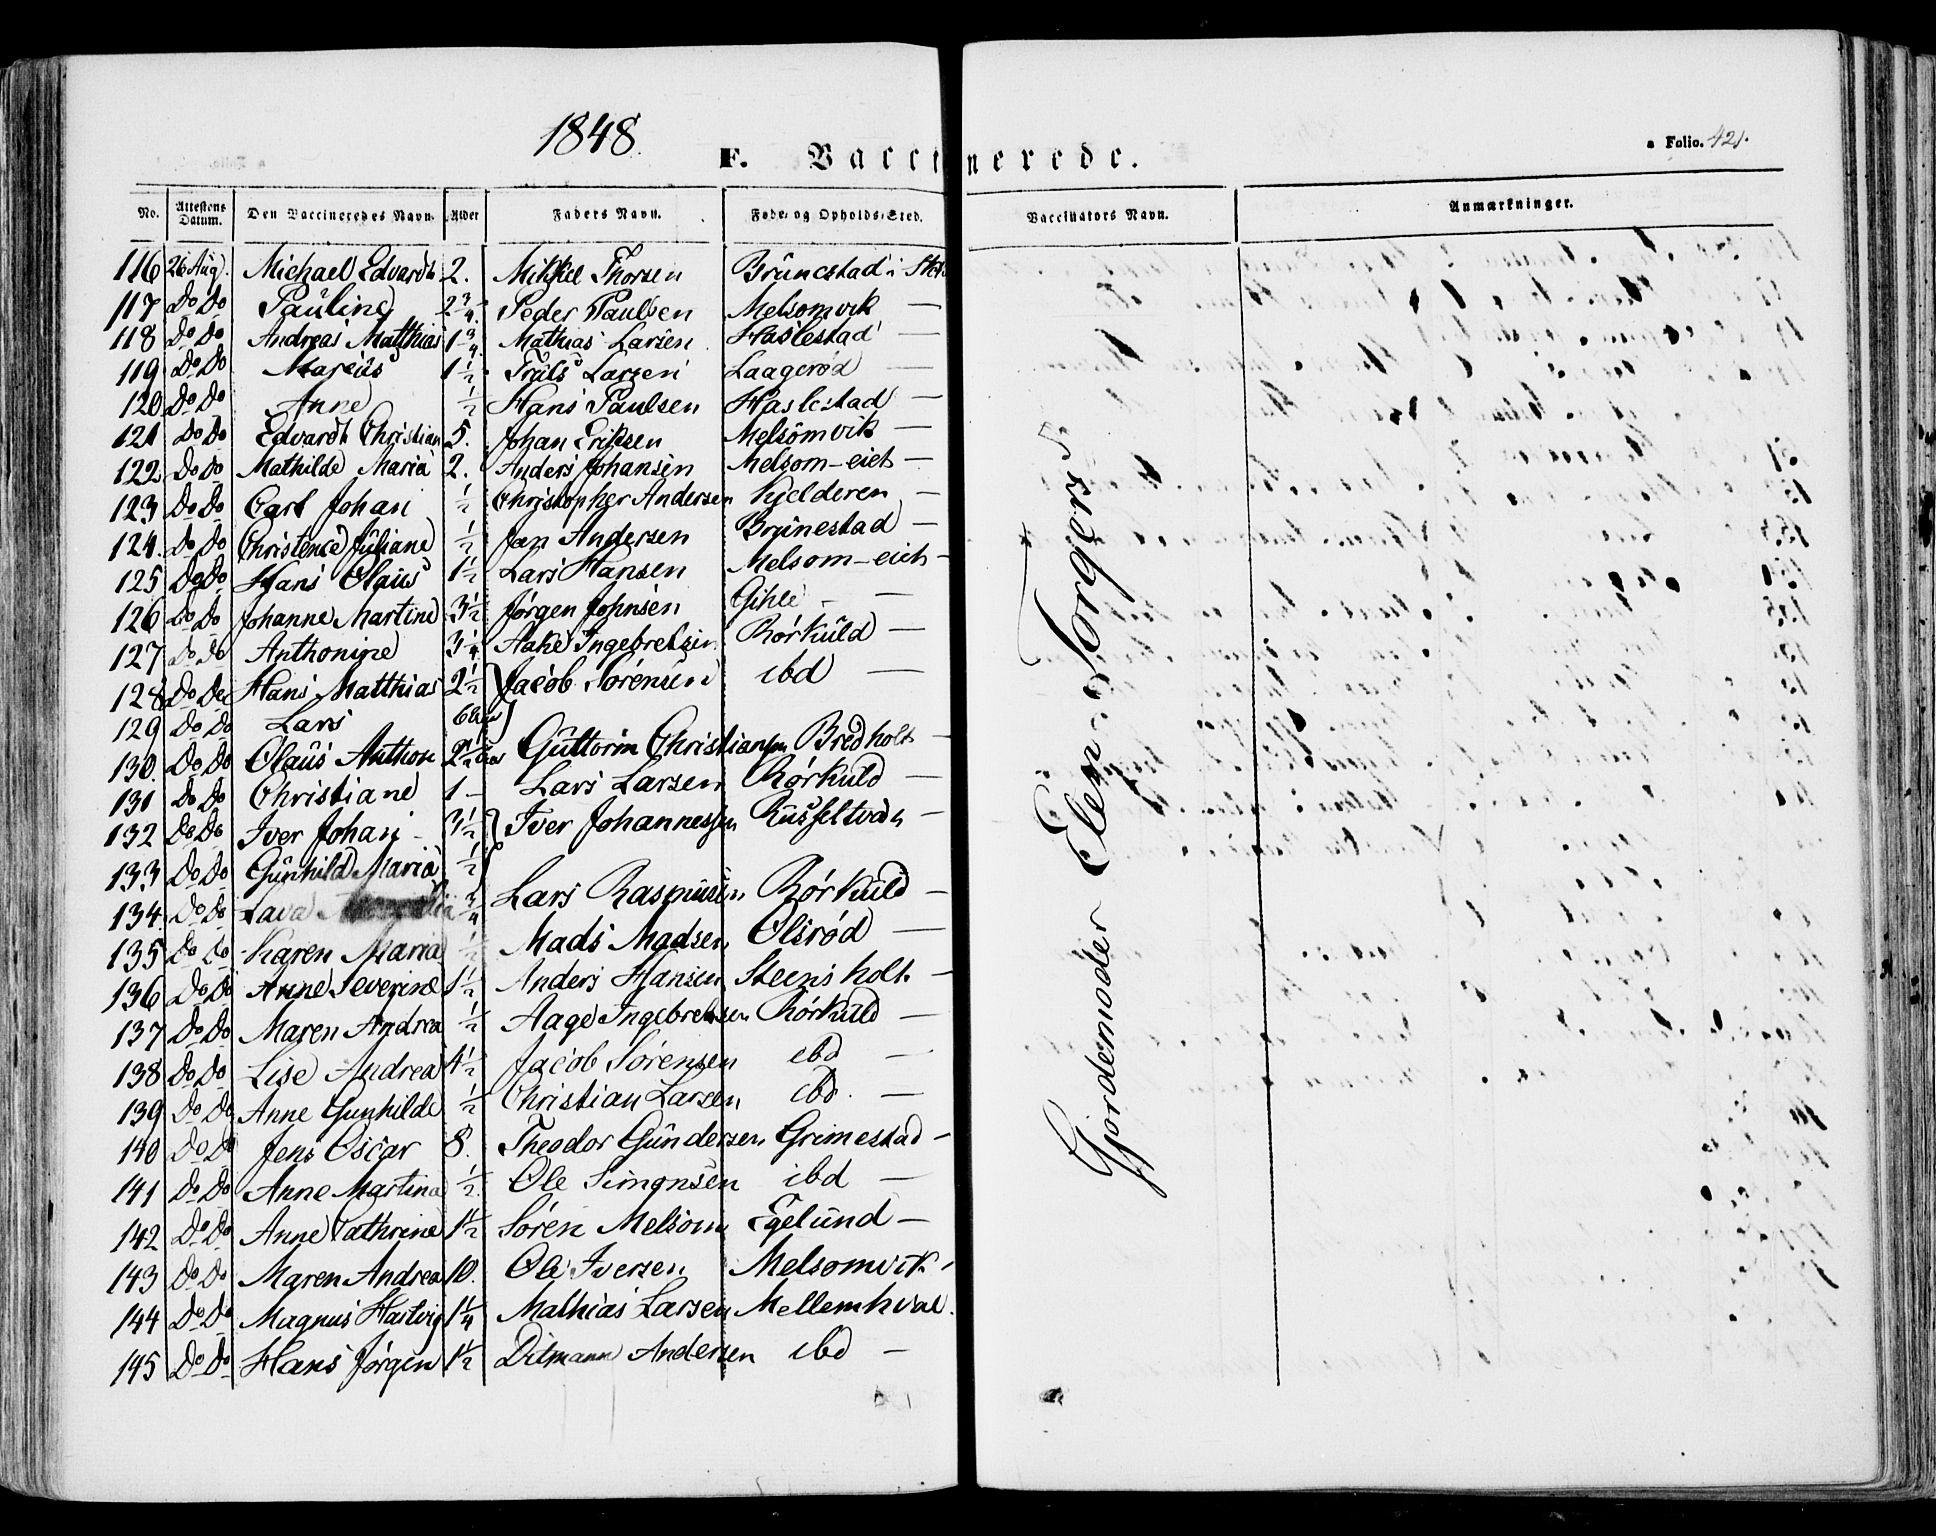 1848.
F. Vaccinerede.
a Folio. 421.
No. Attestens Datum. Den Vaccineredes Navn. Alder Faders Navn. Føde- og Opholds-Sted. Vaccinators Navn. Anmærkninger.
116 26 Aug. Michael Edvardt 2. Mikkel Thorsen Brunestad i
117 Do Do Pauline 2 3/4. Peder Paulsen Melsomvik —
118 Do Do Andreas Matthias 1 3/4. Mathias Larsen Haslestad —
119 Do Do Marius 1 1/2. Truls Larsen Laagerød —
120 Do Do Anne 1/2 Hans Paulsen Haslestad —
121 Do Do Edvardt Christian 5. Johan Eriksen Melsomvik —
122 Do Do Mathilde Maria 2. Anders Johansen Melsom-eiet —
123 Do Do Carl Johan 1/2 Christopher Andersen Kjelderen —
124. Do Do Christence Juliane 1/2 Jan Andersen Brunestad —
125 Do Do Hans Olaus 1 1/2 Lars Hansen Melsom-eiet -
126 Do Do Johanne Martine 3 1/2 Jørgen Johnsen Gihle - —
127 Do Do Anthonine 3 1/4 Aake Ingebretsen Rørkuld —
128 Do Do Hans Matthias 2 1/2 } Jacob Sørensen ibd —
129 Do Do Lars
130. Do Do Olaus Anthon 2 1/2 Guttorm Christiansen Bredholt -
131 Do Do Christiane 1 - Lars Larsen Rørkuld —
132 Do Do Iver Johan - 3 1/2 } Iver Johannessen —
133 Do Do Gunhild Maria 1/2
134. Do Do 3/4 Lars Rasmussen Rørkuld —
135 Do Do Karen Maria 1/2 Mads Madsen Olsrød —
136 Do Do Anne Severine 1 1/2 Anders Hansen Steensholt -
137 Do Do Maren Andrea 1/2 Aage Ingebretsen Rørkuld —
138 Do Do Lise Andrea 4 1/2 Jacob Sørensen ibd —
139 Do Do Anne Gunhilde 1/2 Christian Larsen ibd. —
140 Do Do Jens Oscar 8. Theodor Gundersen Grimestad -
141 Do Do Anne Martina 1/2. Ole Simonsen ibd —
142 Do Do Anne Cathrine 1 1/2 Søren Melsom Egelund —
143 Do Do Maren Andrea 10. Ole Iversen Melsomvik -
144 Do Do Magnus Hartvig 1 1/4 Mathias Larsen Mellemhval.
145 Do Do Hans Jørgen 1 1/2 Ditmann Andersen ibd —
Gjordemoder Elen Torgers